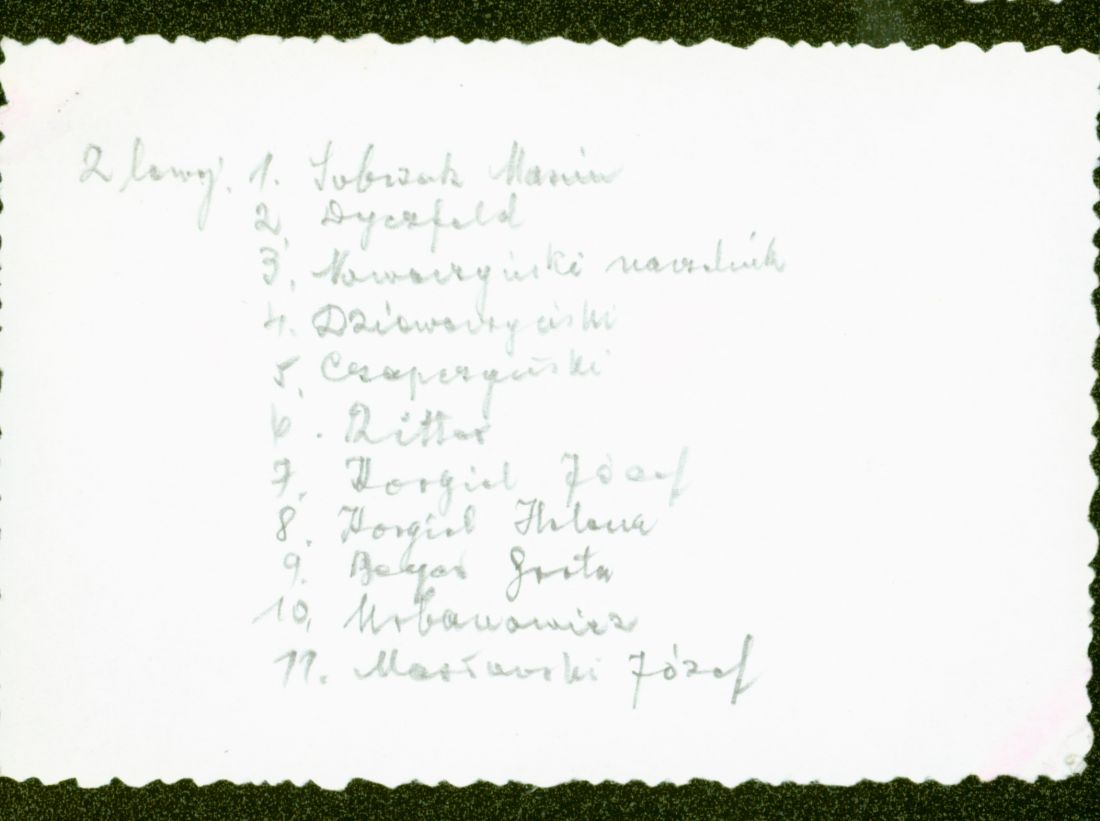 Z lewej. 1. Sobczak Marian
2. Dyczfeld
3. Nowaczyński naczelnik
4. Dziewczyński
5. Czapczyński
6. Ritter
7. Korgiel Józef
8. Korgiel Helena
9. Beyer Greta
10. Urbanowicz
11. Masłowski Józef